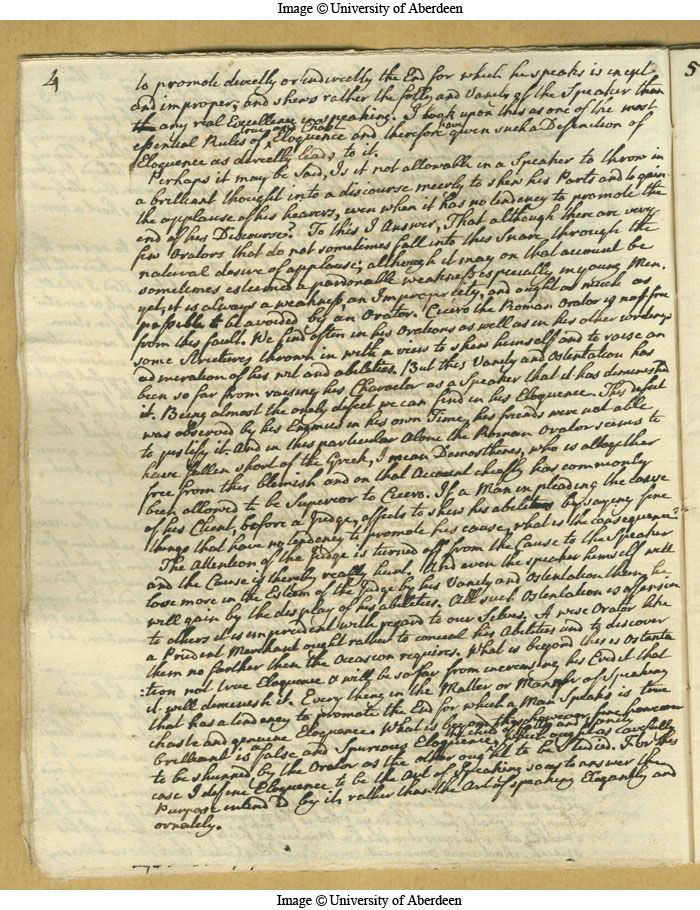 Image © University of Aberdeen
4
5
to promote directly or indirectly the End for which he speaks is inept
and improper; and shews rather the folly and Vanity of the Speaker than
any real Excellence in speaking. I look upon this as one of the most
essential Rules of true and Chast Eloquence and therefore have given such a Definition of
Eloquence as directly leads to it.
Perhaps it may be said, Is it not allowable in a Speaker to throw in
a brilliant thought into a discourse meerly to shew his Parts and to gain
the applause of his hearers, even when it has no tendency to promote the
end of his Discourse? To this I Answer, That although there are very
few Orators that do not sometimes fall into this Snare through the
natural desire of applause; although it may on that account be
sometimes esteemed a pardonable weakness especially in young Men,
yet, it is always a weakness, an Impropriety, and ought as much as
possible to be avoided by an Orator. Cicero the Roman Orator is not free
from this fault. We find often in his Orations as well as in his other writings
some Strictures thrown in with a view to shew himself and to raise an
admiration of his wit and abilities. But this Vanity and Ostentation has
been so far from raising his Character as a Speaker that it has diminished
it. Being almost the onely defect we can find in his Eloquence. This defect
was observed by his Enemies in his own Time, his friends were not able
to justify it. And in this particular Alone the Roman Orator seems to
have fallen short of the Greek, I mean Demosthenes, who is alltogether
free from this Blemish and on that Account chiefly has commonly
been allowed to be Superior to Cicero. If a Man in pleading the cause
of his Client, before a Judge, affects to shew his abilities by saying fine
things that have no tendency to promote his cause, what is the consequence?
The Attention of the Judge is turned off from the Cause to the Speaker
and the Cause is thereby really hurt. And even the speaker himself will
lose more in the Esteem of the Judge by his Vanity and Ostentation then he
will gain by the display of his abilities. All such Ostentation is offensive
to others it is imprudent with regard to our Selves. A wise Orator like
a Prudent Merchant ought rather to conceal his Abilities and to discover
them no farther then the Occasion requires. What is beyond this is Ostenta
:tion not true Eloquence & will be so far from increasing his Credit that
it will diminish it. Every thing in the Matter or Manner of Speaking
that has a tendency to promote the End for which a Man Speaks is true
chaste and genuine Eloquence. What is beyond this however fine however
brilliant is a false and Spurious Eloquence, the child of folly and Vanity which ought as carefully
to be shunned by the Orator as the other ought to be studied. For this
case I define Eloquence to be the Art of Speaking so as to answer the
Purpose intend'd by it, rather than the Art of speaking Elegantly and
ornately.
Image © University of Aberdeen